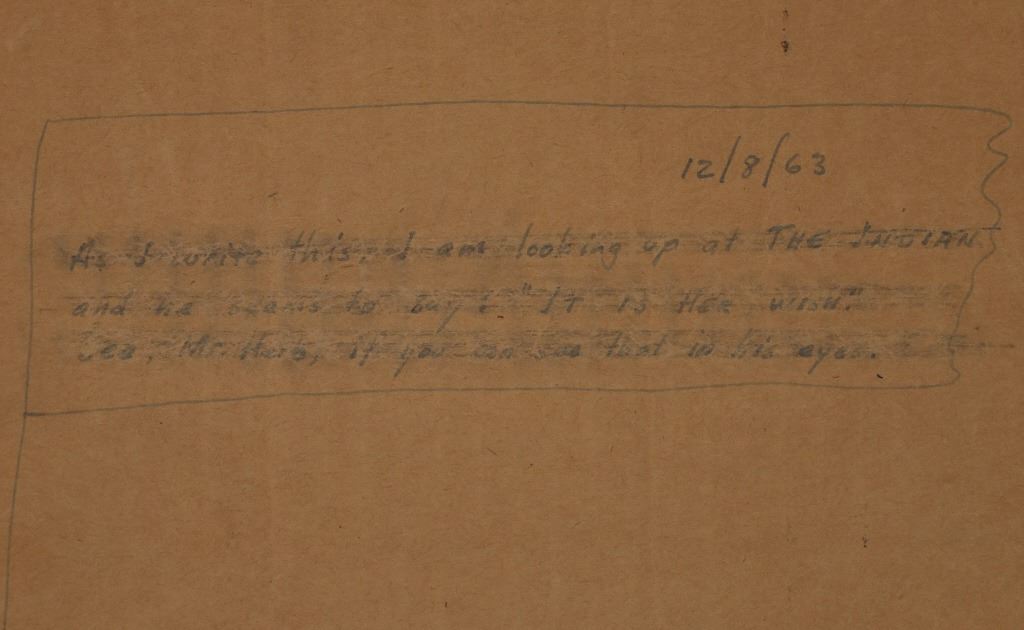 12/8/63
As I write this, I am looking up at THE INDIAN
and he seems to say: "IT IS HER WISH."
See, Mr. Herb, if you can see that in his eyes.